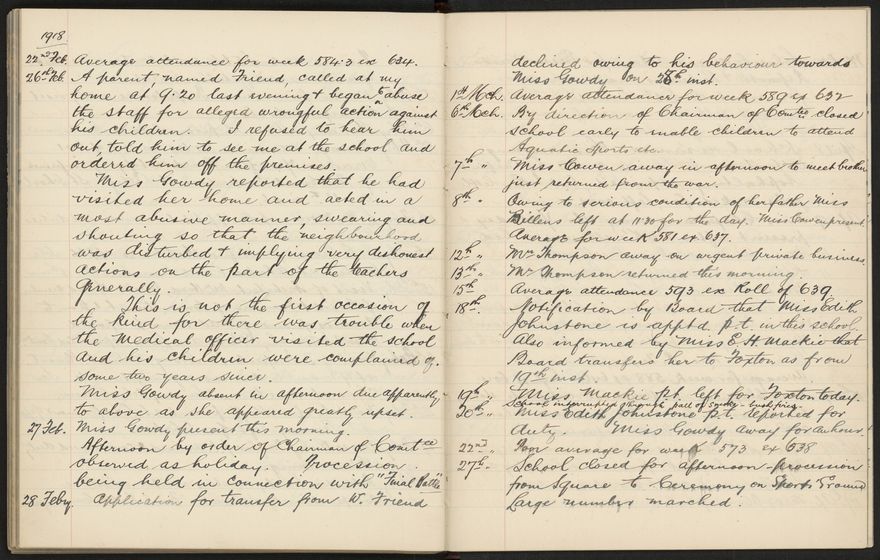 1918
22nd Feb. Average attendance for week 584.3 ex 634.
26th Feb. A parent, named Friend, called at my
home at 9.20 last evening & began to abuse
the staff for alleged wrongful action against
his children. I refused to hear him
out, told him to see me at the school and
ordered him off the premises.
Miss Gowdy reported that he had
visited her home and acted in a
most abusive manner, swearing and
shouting so that the neighbourhood
was disturbed & implying very dishonest
actions on the part of the teachers
generally.
This is not the first occasion of
the kind, for there was trouble when
the medical officer visited the school
and his children were complained of
some two years since.
Miss Gowdy absent in afternoon due apparently
to above as she appeared greatly upset.
27 Feb. Miss Gowdy present this morning.
Afternoon by order of Chairman of Comtee
observed as holiday. Procession
being held in connection with "Final
28 Feby Application for transfer from W. Friend
declined owing to his behaviour towards
Miss Gowdy on inst.
1st Mch. Average attendance for week 589 ex 632
6th Mch. By direction of Chairman of Comtee closed
school early to enable children to attend
Aquatic Sports etc.
7th " Miss Cowen away in afternoon to meet brother
just returned from the war.
8th " Owing to serious condition of her father Miss
left at 11.30 for the day. Miss Cowen present.
Average for week 581 ex 637.
12th " Mr Thompson away on urgent private business.
13th " Mr Thompson returned this morning.
15th Average attendance 593 ex Roll of 639
18th. Notification by Board that Miss Edith
Johnstone is apptd p.t. in this school.
Also informed by Miss E. H. Mackie that
Board transfers her to Foxton as from
19th inst.
19th " Miss Mackie p.t. left for Foxton today.
School full of smoke - bush fires.
20th " Miss Edith Johnstone p.t. reported for
duty. Miss Gowdy away for an hour.
22nd " Poor average for week 573 ex 638
27th. School closed for afternoon - procession
from Square to Ceremony on Sports Ground
Large number marched.